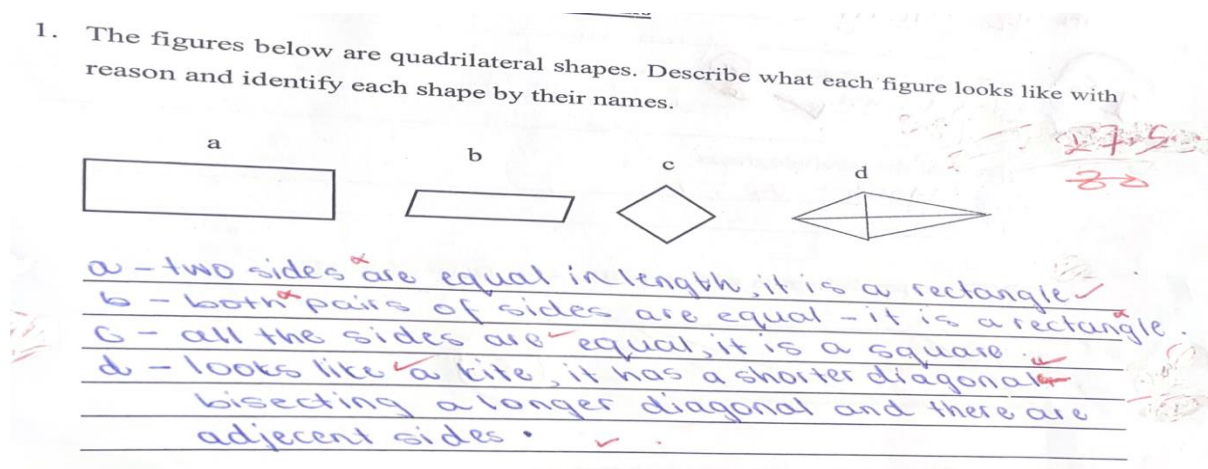 1. The figures below are quadrilateral shapes. Describe what each figure looks like with
reason and identify each shape by their names.
a b c d
27.5
30
a - two sides are equal in length, it is a rectangle
b - both pairs of sides are equal - it is a rectangle.
c - all the sides are equal, it is a square.
d - looks like a kite, it has a shorter diagonal
bisecting a longer diagonal and there are
adjecent sides.